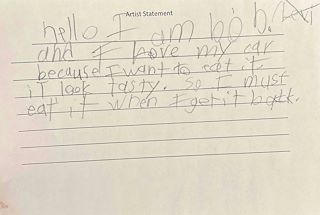 Artist Statement
hello I am bo b.
and I love my car
because I want to eat it.
it look tasty. So I must
eat it when I get it back.